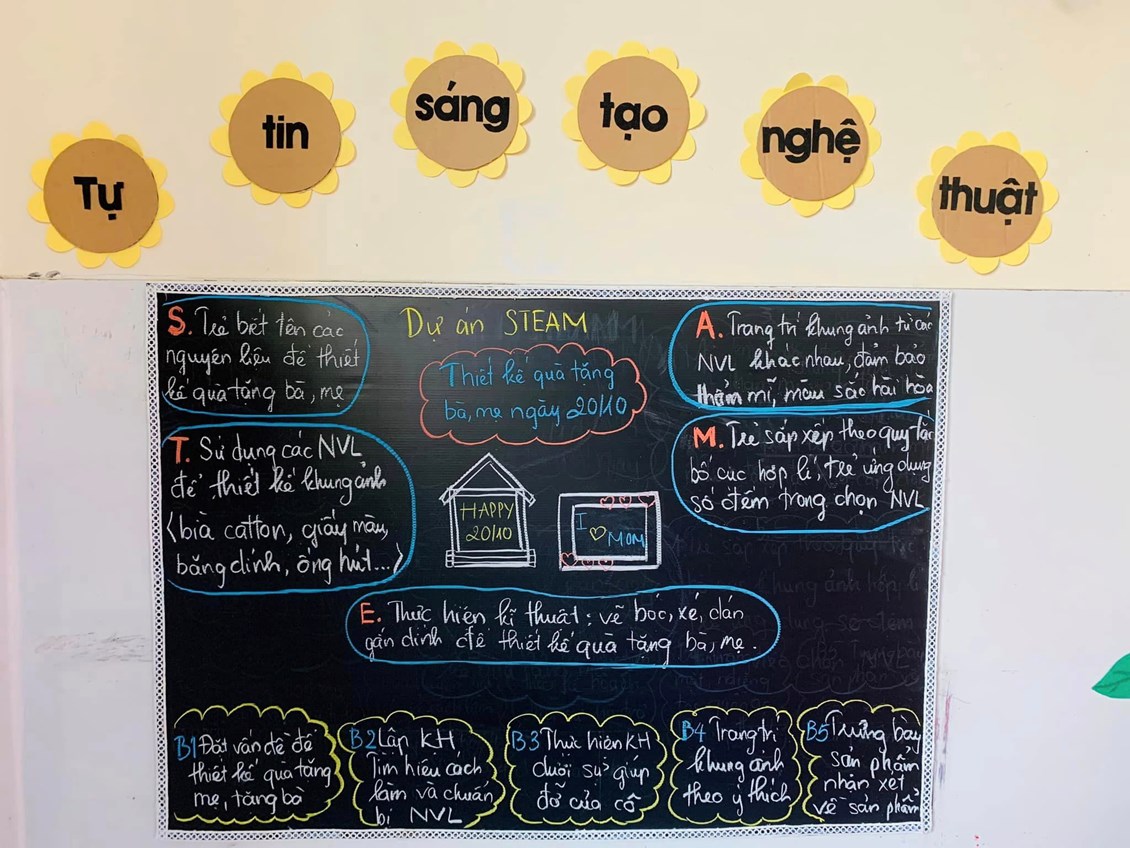 Tự tin sáng tạo nghệ thuật
Dự án STEAM
Thiết kế quà tặng
bà, mẹ ngày 20/10
S. Trẻ biết tên các
nguyên liệu để thiết
kế quà tặng bà, mẹ
T. Sử dụng các NVL
để thiết kế khung ảnh
(bìa catton, giấy màu,
băng dính, ống hút...)
HAPPY
20/10
I
MOM
E. Thực hiện kĩ thuật: vẽ bóc, xé, dán
gắn dính để thiết kế quà tặng bà, mẹ.
A. Trang trí khung ảnh từ các
NVL khác nhau, đảm bảo
thẩm mĩ, màu sắc hài hòa
M. Trẻ sắp xếp theo quy tắc
bố cục hợp lí, trẻ ứng dụng
số đếm trong chọn NVL
B1 Đặt vấn đề để
thiết kế quà tặng
mẹ, tặng bà
B2 Lập KH
Tìm hiểu cách
làm và chuẩn
bị NVL
B3 Thực hiện KH
dưới sự giúp
đỡ của cô
B4 Trang trí
khung ảnh
theo ý thích
B5 Trưng bày
sản phẩm
nhận xét
về sản phẩm